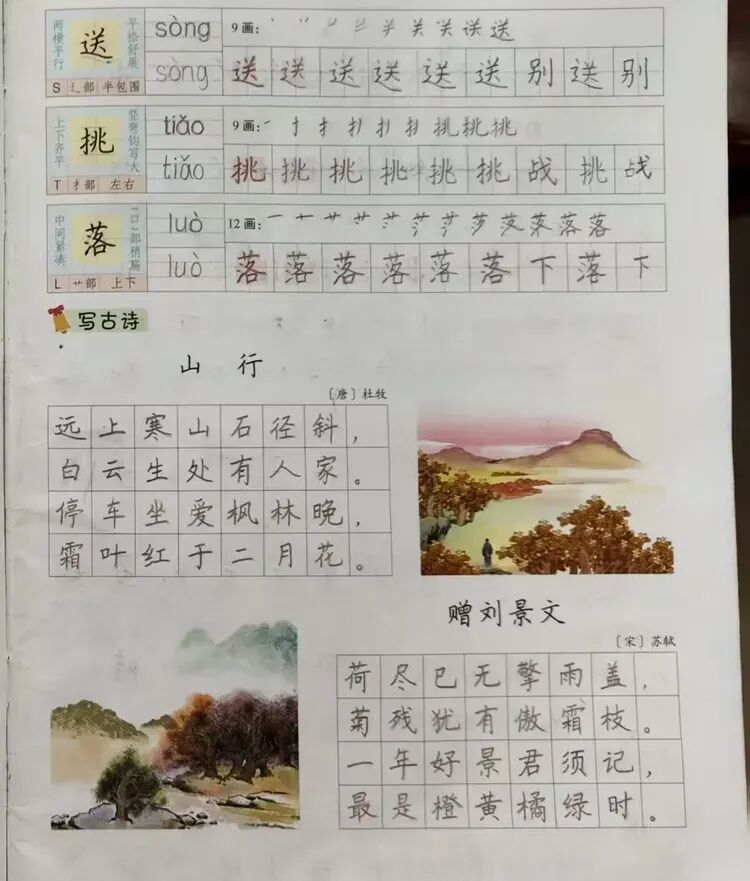 两横平行 送 平捺舒展 sòng 9画：丶 丷 䒑 兰 关 关 送 送
S 辶部 半包围 sòng 送 送 送 送 送 送 别 送 别
上下齐平 挑 竖弯钩写大 tiǎo 9画：一 扌 扌 挑 挑 挑
T 扌部 左右 tiǎo 挑 挑 挑 挑 挑 挑 战 挑 战
中间紧凑 落 “口”部稍扁 luò 12画：一 十 艹 艹 艹 莎 茨 落 落 落
L 艹部 上下 luò 落 落 落 落 落 落 下 落 下
写古诗
山 行
〔唐〕杜牧
远上寒山石径斜，
白云生处有人家。
停车坐爱枫林晚，
霜叶红于二月花。
赠刘景文
〔宋〕苏轼
荷尽已无擎雨盖，
菊残犹有傲霜枝。
一年好景君须记，
最是橙黄橘绿时。